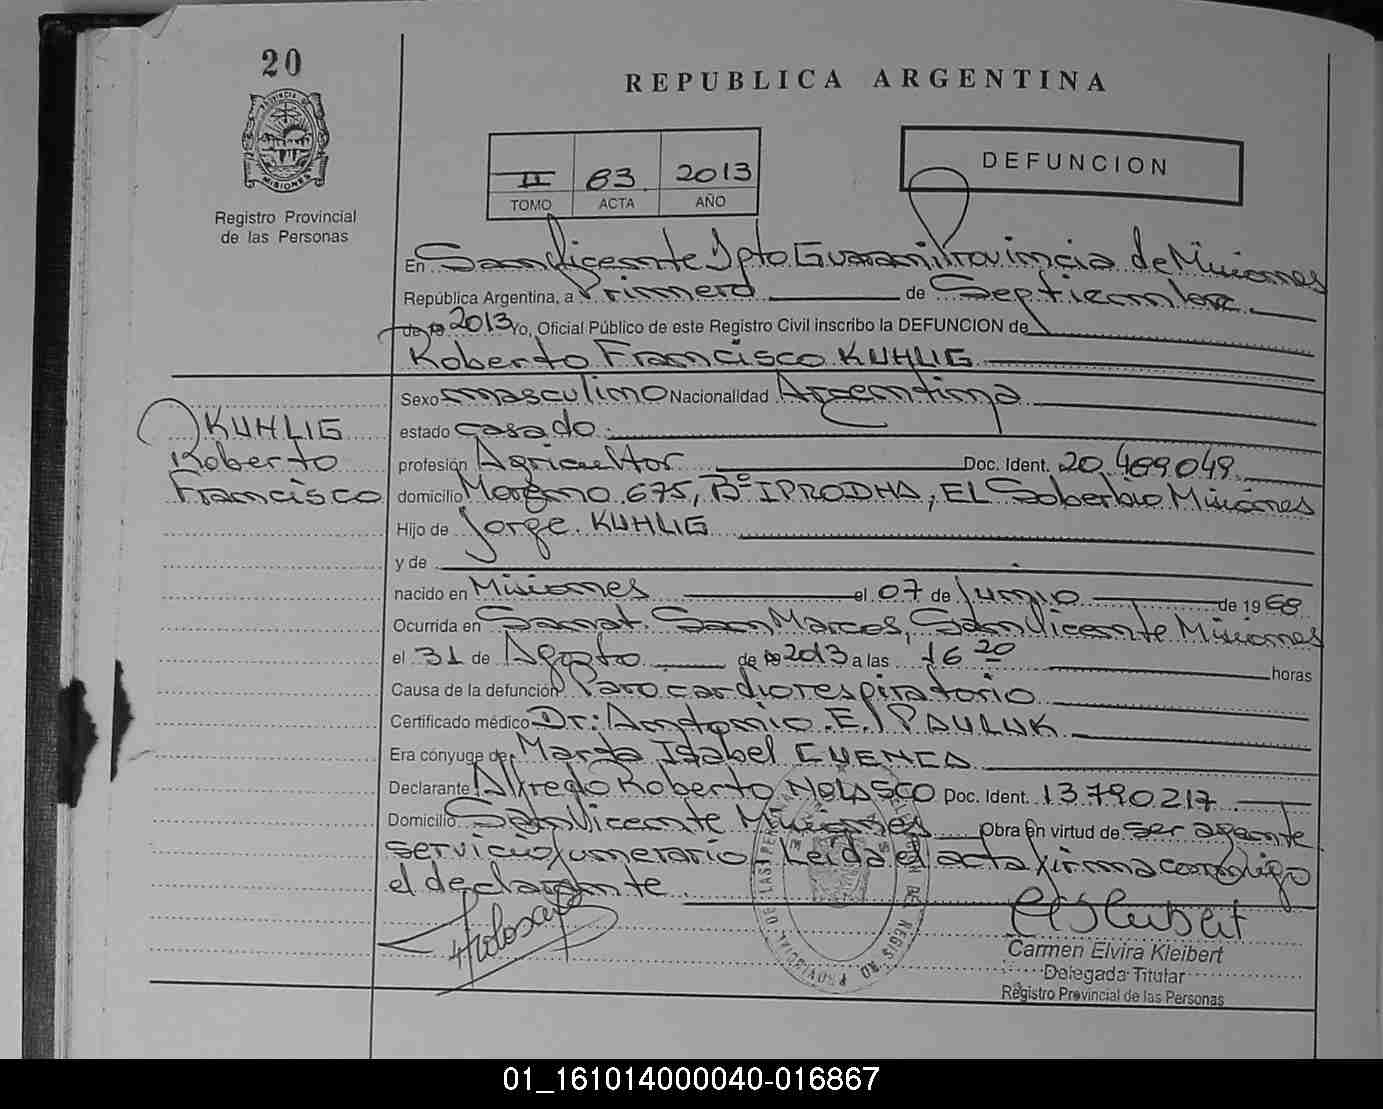 20
REPUBLICA ARGENTINA
PROVINCIA DE
MISIONES
Registro Provincial
de las Personas
II 83 2013
TOMO ACTA AÑO
DEFUNCION
En San Vicente Dpto Guarani Provincia de Misiones
República Argentina, a Primero de Septiembre
de 19 2013 Yo, Oficial Público de este Registro Civil inscribo la DEFUNCION de
Roberto Francisco KUHLIG
Sexo masculino Nacionalidad Argentina
KUHLIG
Roberto
Francisco
estado casado.
profesión Agricultor Doc. Ident. 20.469049
domicilio Moreno 675, Bº IPRODHA, EL Soberbio Misiones
Hijo de Jorge KUHLIG
y de
nacido en Misiones el 07 de Junio de 1968
Ocurrida en Sanat. San Marcos, San Vicente Misiones
el 31 de Agosto de 19 2013 a las 16 20 horas
Causa de la defunción Paro cardiorespiratorio
Certificado médico Dr: Antonio E. PAULUK
Era cónyuge de: Marta Isabel CUENCA
Declarante Alfredo Roberto NOLASCO Doc. Ident. 13.790.217
Domicilio San Vicente Misiones Obra en virtud de ser agente
servicio funerario - Leida el acta firma conmigo
el declarante
Carmen Elvira Kleibert
Delegada Titular
Registro Provincial de las Personas
01_161014000040-016867